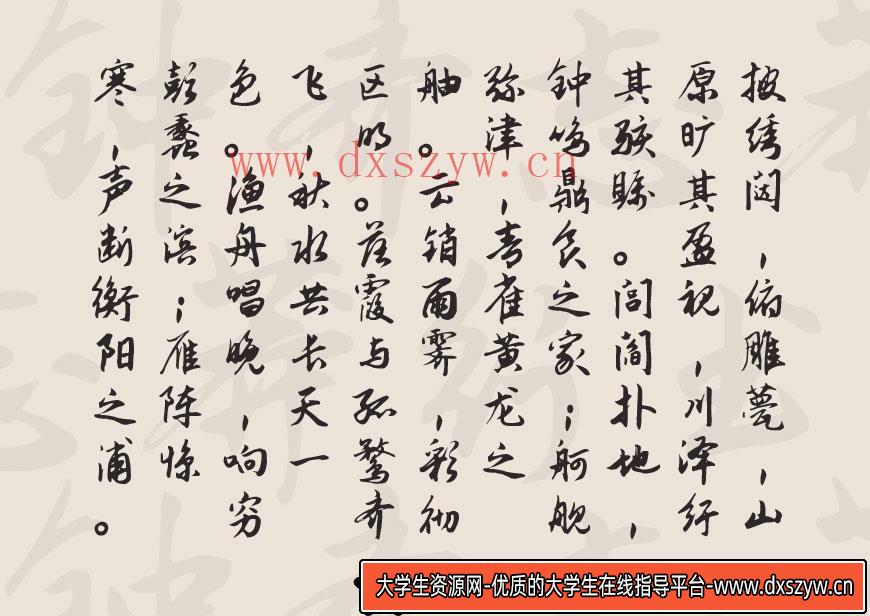 披绣闼，俯雕甍，山
原旷其盈视，川泽纡
其骇瞩。闾阎扑地，
钟鸣鼎食之家；舸舰
弥津，青雀黄龙之
舳。云销雨霁，彩彻
区明。落霞与孤鹜齐
飞，秋水共长天一
色。渔舟唱晚，响穷
彭蠡之滨；雁阵惊
寒，声断衡阳之浦。
www.dxszyw.cn
大学生资源网-优质的大学生在线指导平台-www.dxszyw.cn